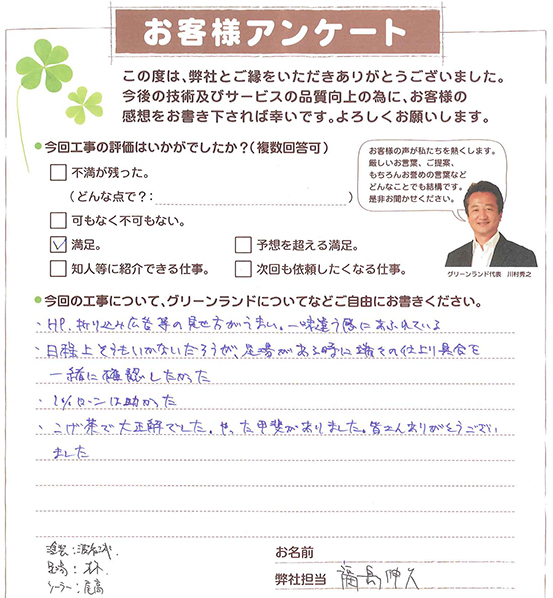 お客様アンケート
この度は、弊社とご縁をいただきありがとうございました。
今後の技術及びサービスの品質向上の為に、お客様の
感想をお書き下されば幸いです。よろしくお願いします。
今回工事の評価はいかがでしたか?(複数回答可)
不満が残った。
(どんな点で?: )
可もなく不可もない。
満足。
予想を超える満足。
知人等に紹介できる仕事。
次回も依頼したくなる仕事。
お客様の声が私たちを熱くします。
厳しいお言葉、ご提案、
もちろんお誉めの言葉など
どんなことでも結構です。
是非お聞かせください。
グリーンランド代表 川村秀之
今回の工事について、グリーンランドについてなどご自由にお書きください。
・HP、折り込み広告等の見せ方がうまい。一味違う感にあふれている
・日程上そうもいかないだろうが、足場がある時に端々の仕上り具合を
一緒に確認したかった
・1%ローンは助かった
・こげ茶で大正解でした。やった甲斐がありました。皆さんありがとうござい
ました
お名前
弊社担当 福島伸久
塗装:
足場:林
ソーラー:尾高